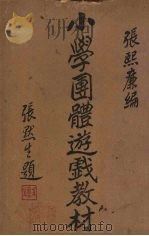 張熙廉編
小學團體遊戲教材
張默生題